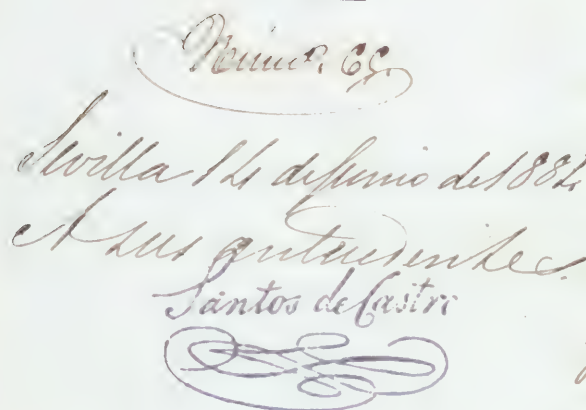 Núm.º 66
Sevilla 14 de Junio de 1884
A sus antecedentes.
Santos de Castro